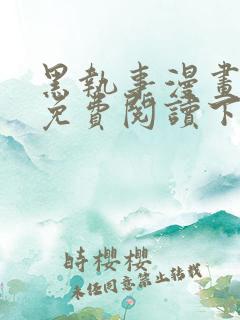 黑執事漫畫
免費閱讀下
時櫻櫻
未經同意禁止轉載